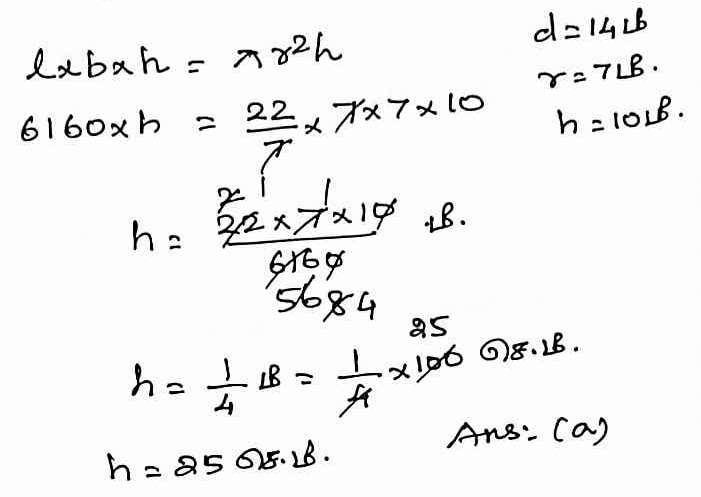 l x b x h = π r²h
d = 14 மீ
r = 7 மீ.
h = 10 மீ.
6160 x h = 22/7 x 7 x 7 x 10
h = 22 x 7 x 10 / 6160 மீ.
2 1 1
56 8 4
h = 1/4 மீ = 1/4 x 100 செ.மீ.
25
h = 25 செ.மீ.
Ans:- (a)